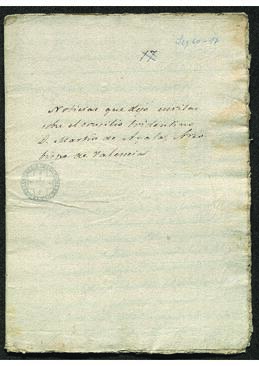 Leg 60-17
17
Noticias que dejó escritas
sobre el concilio tridentino
D. Martin de Ayala, Arzo
bispo de Valencia